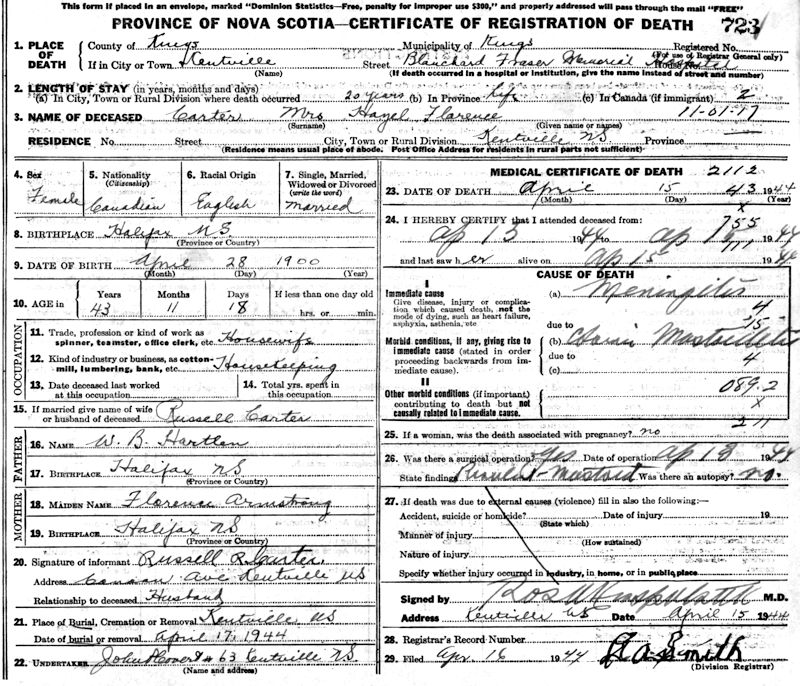 This form if placed in an envelope, marked "Dominion Statistics—Free, penalty for improper use $300," and properly addressed will pass through the mail "FREE"
PROVINCE OF NOVA SCOTIA—CERTIFICATE OF REGISTRATION OF DEATH 723
1. PLACE OF DEATH
County of Kings Municipality of Kings Registered No.
(For use of Registrar General only)
If in City or Town Kentville Street Blanchard Fraser Memorial Hospital
(Name) (If death occurred in a hospital or institution, give the name instead of street and number)
2. LENGTH OF STAY (in years, months and days)
(a) In City, Town or Rural Division where death occurred 20 years (b) In Province Life (c) In Canada (if immigrant) 2
3. NAME OF DECEASED Carter Mrs Hazel Florence 11-01-17
(Surname) (Given name or names)
RESIDENCE No. Street City, Town or Rural Division Kentville NS Province
(Residence means usual place of abode. Post Office Address for residents in rural parts not sufficient)
4. Sex Female
5. Nationality (Citizenship) Canadian
6. Racial Origin English
7. Single, Married, Widowed or Divorced (write the word) Married
8. BIRTHPLACE Halifax NS
(Province or Country)
9. DATE OF BIRTH April 28 1900
(Month) (Day) (Year)
10. AGE in Years Months Days If less than one day old
43 11 18 hrs. or min.
OCCUPATION
11. Trade, profession or kind of work as spinner, teamster, office clerk, etc. Housewife
12. Kind of industry or business, as cotton-mill, lumbering, bank, etc. Housekeeping
13. Date deceased last worked at this occupation
14. Total yrs. spent in this occupation
15. If married give name of wife or husband of deceased Russell Carter
FATHER
16. NAME W. B. Hartlen
17. BIRTHPLACE Halifax NS
(Province or Country)
MOTHER
18. MAIDEN NAME Florence Armstrong
19. BIRTHPLACE Halifax NS
(Province or Country)
20. Signature of informant Russell R. Carter
Address Canaan Ave Kentville NS
Relationship to deceased Husband
21. Place of Burial, Cremation or Removal Kentville NS
Date of burial or removal April 17, 1944
22. UNDERTAKER 63 Kentville N.S.
(Name and address)
MEDICAL CERTIFICATE OF DEATH 2112
23. DATE OF DEATH April 15 43 1944
(Month) (Day) (Year)
x
24. I HEREBY CERTIFY that I attended deceased from: 755
Ap 13 1944 to Ap 15 1944
and last saw her alive on Ap 15 1944
CAUSE OF DEATH
I
Immediate cause
Give disease, injury or complication which caused death, not the mode of dying, such as heart failure, asphyxia, asthenia, etc
(a) Meningitis
4
due to 15
Morbid conditions, if any, giving rise to immediate cause (stated in order proceeding backwards from immediate cause).
(b) Mastoiditis
due to 4
(c)
II
Other morbid conditions (if important) contributing to death but not causally related to immediate cause.
089.2
x
211
25. If a woman, was the death associated with pregnancy? no
26. Was there a surgical operation? yes Date of operation Ap 13 1944
State findings Purulent Mastoid Was there an autopsy? no.
27. If death was due to external causes (violence) fill in also the following:—
Accident, suicide or homicide? Date of injury 19
(State which)
Manner of injury
(How sustained)
Nature of injury
Specify whether injury occurred in industry, in home, or in public place
Signed by M.D.
Address Kentville NS Date April 15 1944
28. Registrar's Record Number
29. Filed Apr. 16 1944 Smith
(Division Registrar)